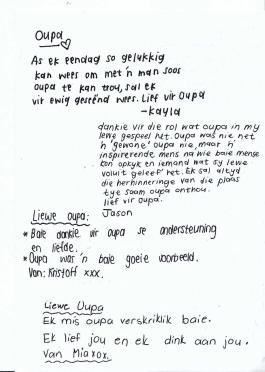 Oupa
As ek eendag so gelukkig
kan wees om met 'n man soos
oupa te kan trou, sal ek
vir ewig geseënd wees. Lief vir Oupa
-Kayla
dankie vir die rol wat oupa in my
lewe gespeel het. Oupa was nie net
'n 'gewone' oupa nie, maar 'n
inspirerende mens na wie baie mense
kon opkyk en iemand wat sy lewe
voluit geleef het. Ek sal altyd
die herhinneringe van die plaas
tye saam oupa onthou.
lief vir oupa.
Jason
Liewe oupa:
* Baie dankie vir oupa se ondersteuning
en liefde.
* Oupa was 'n baie goeie voorbeeld.
Van: Kristoff xxx.
Liewe Oupa
Ek mis oupa verskriklik baie.
Ek lief jou en ek dink aan jou.
Van Mia xox.